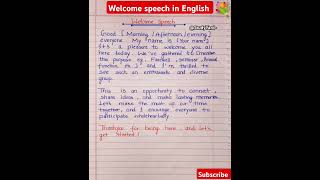 Welcome speech in English
Welcome Speech
Good [Morning / Afternoon / evening]
everyone. My name is [Your name]
It's a pleasure to welcome you all
here today. We've gathered to [mention
the purpose eg. Farewell, seminar, Annual
function etc.] and I'm thrilled to
see such an enthusiastic and diverse
group.
This is an opportunity to connect,
share ideas, and make lasting memories.
Let's make the most of our time
together, and I encourage everyone to
participate wholeheartedly.
Thankyou for being here, and let's
get started!
Subscribe